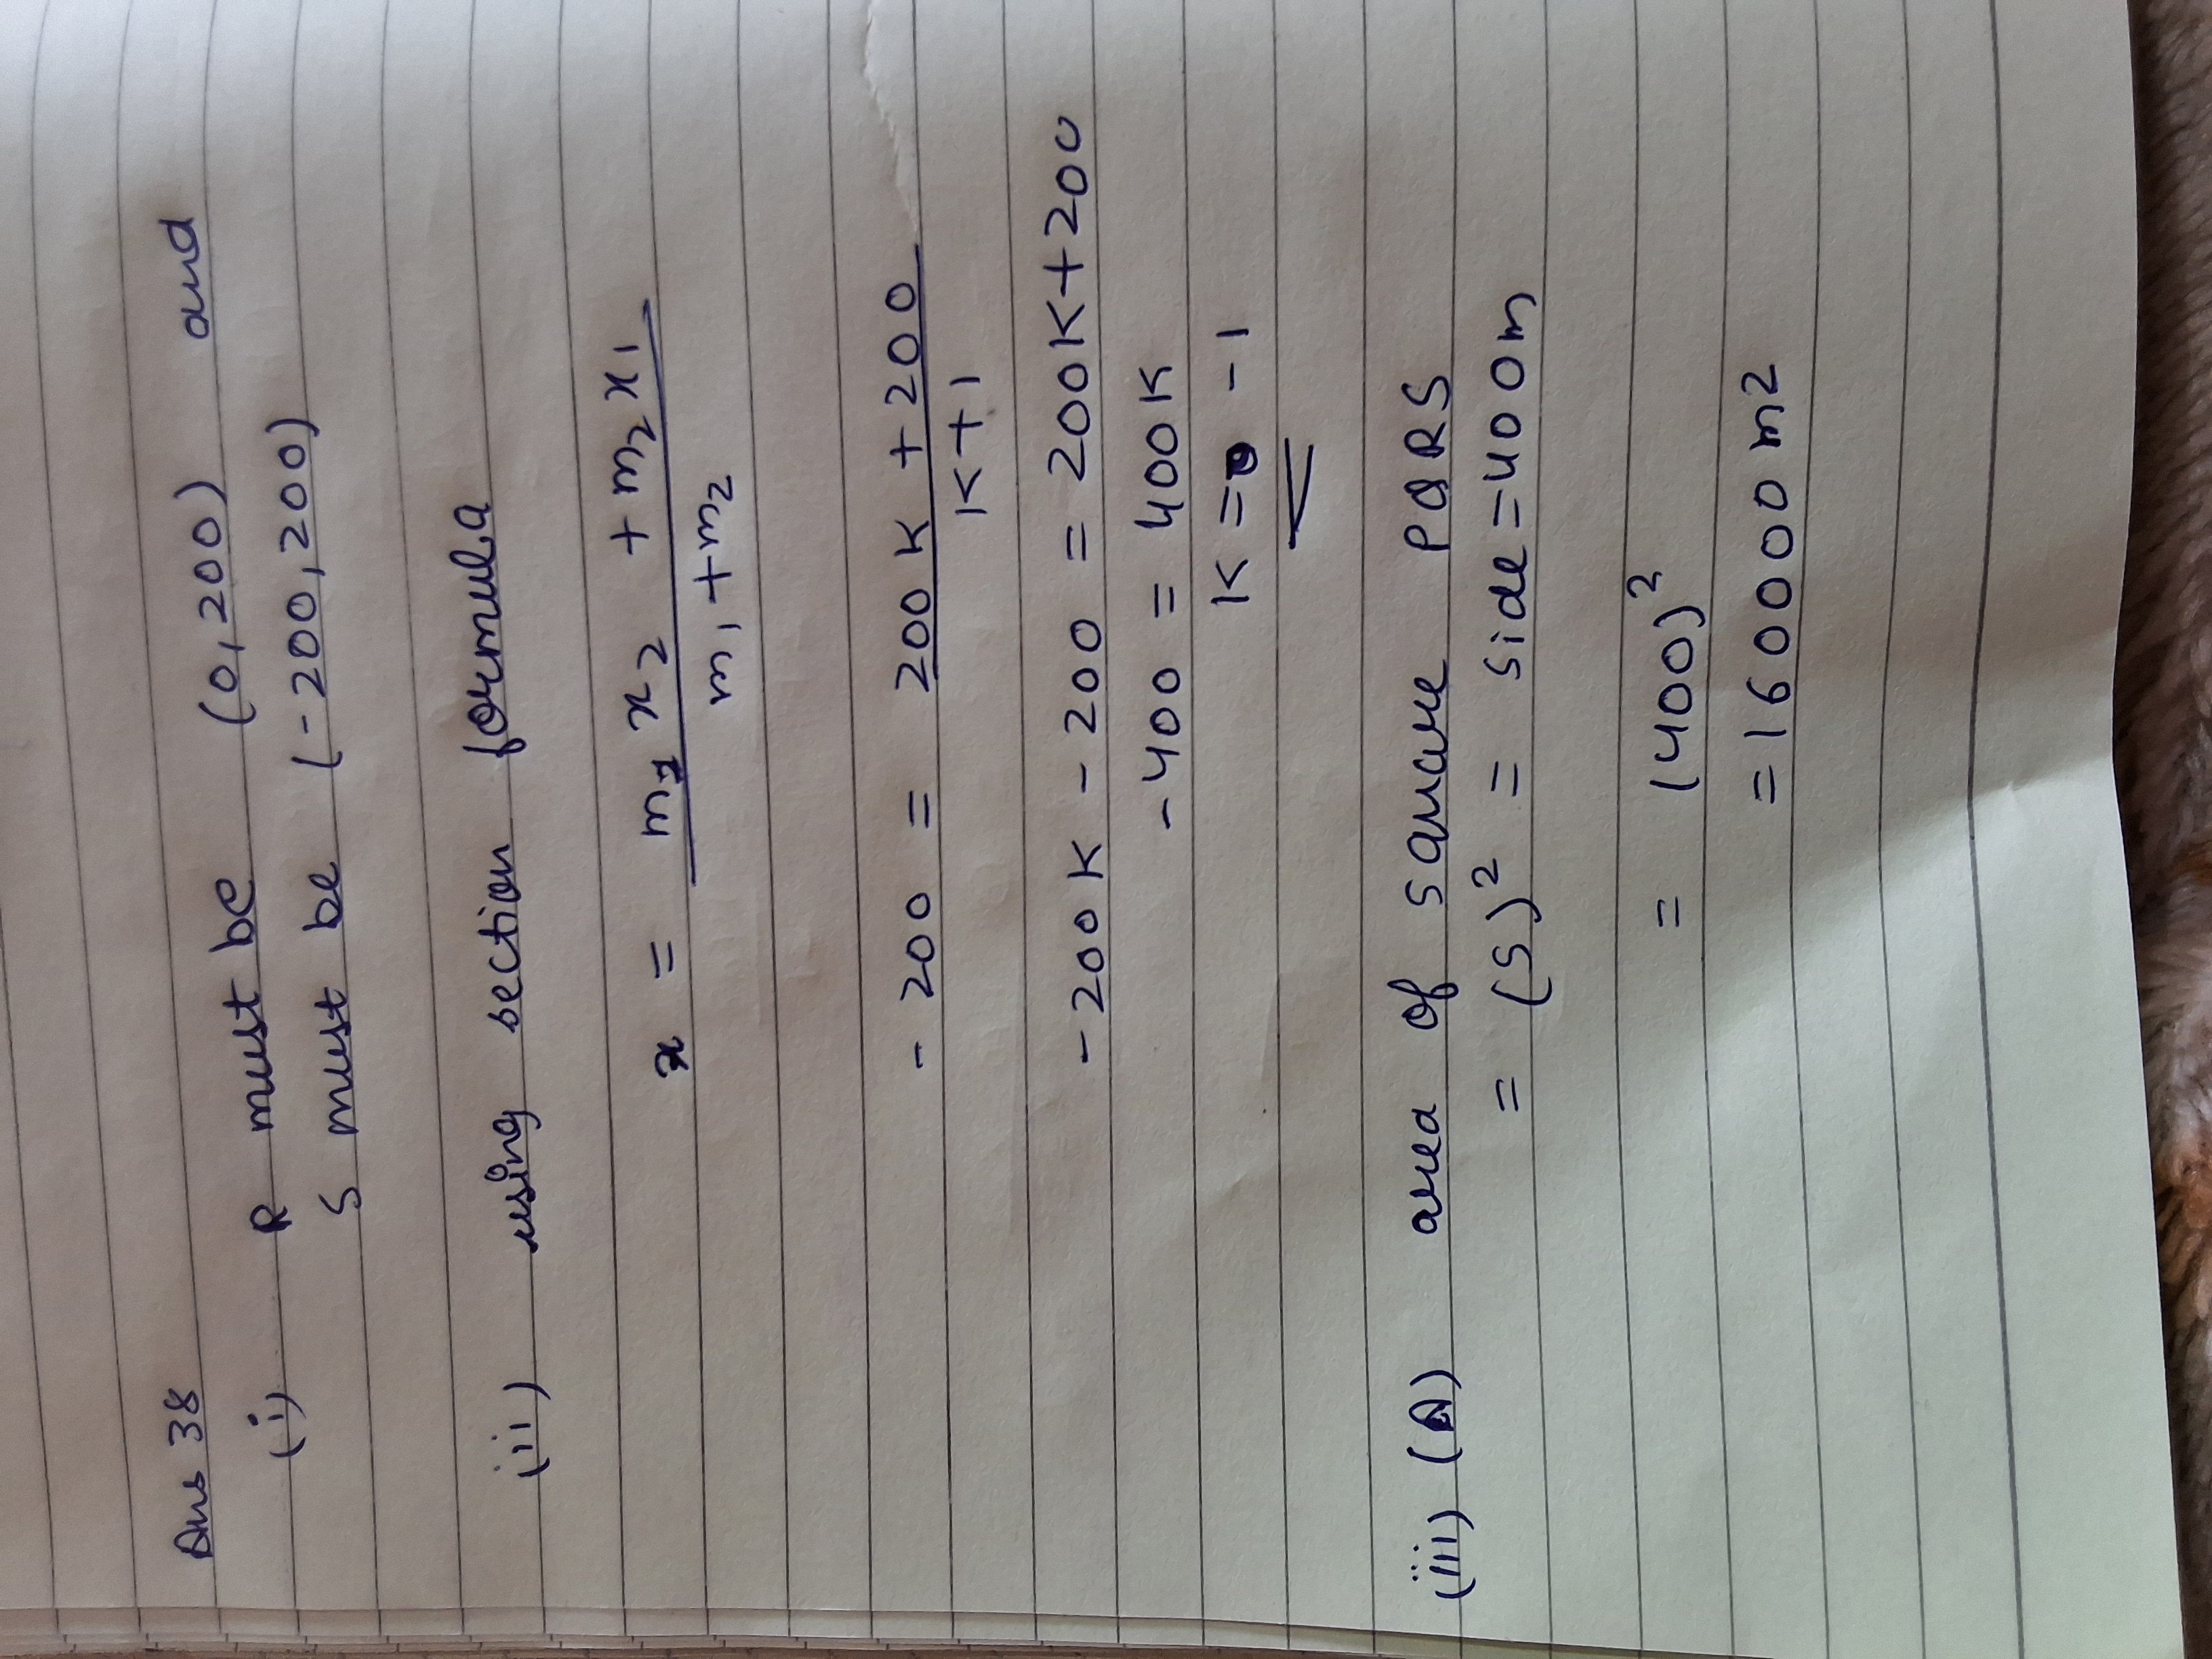 Ans 38
and
(i) R must be (0,200)
S must be (-200,200)
(ii) using section formula
x = m1 x2 + m2 x1
m1 + m2
-200 = 200K + 200
K+1
-200K - 200 = 200K+200
-400 = 400K
K = -1
(iii) (A) area of square PQRS
= (S)² = side = 400m
= (400)²
= 160000 m2